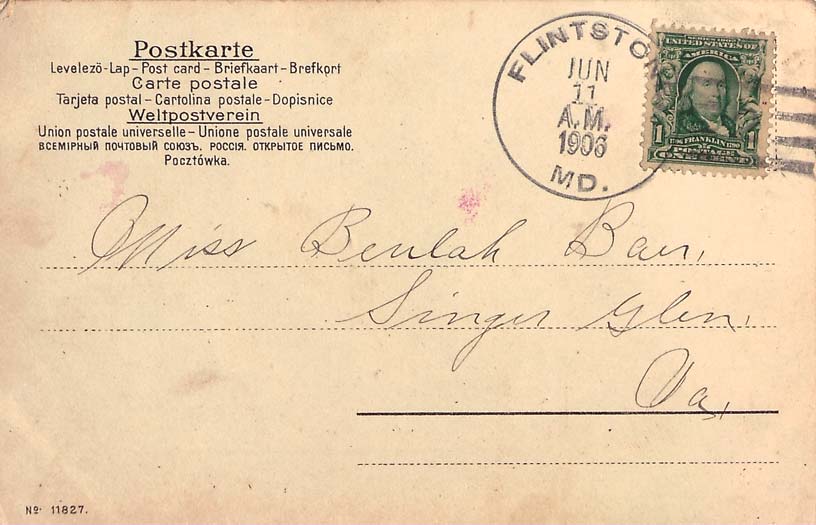 Postkarte
Levelezö-Lap – Post card – Briefkaart – Brefkort
Carte postale
Tarjeta postal – Cartolina postale – Dopisnice
Weltpostverein
Union postale universelle – Unione postale universale
ВСЕМІРНЫЙ ПОЧТОВЫЙ СОЮЗЪ. РОССІЯ. ОТКРЫТОЕ ПИСЬМО.
Pocztówka.
FLINTSTON
JUN
11
A.M.
1906
MD.
UNITED STATES OF
AMERICA
1 FRANKLIN 1
POSTAGE
ONE CENT
Miss Beulah Baer,
Singer Glen,
Va,
No. 11827.